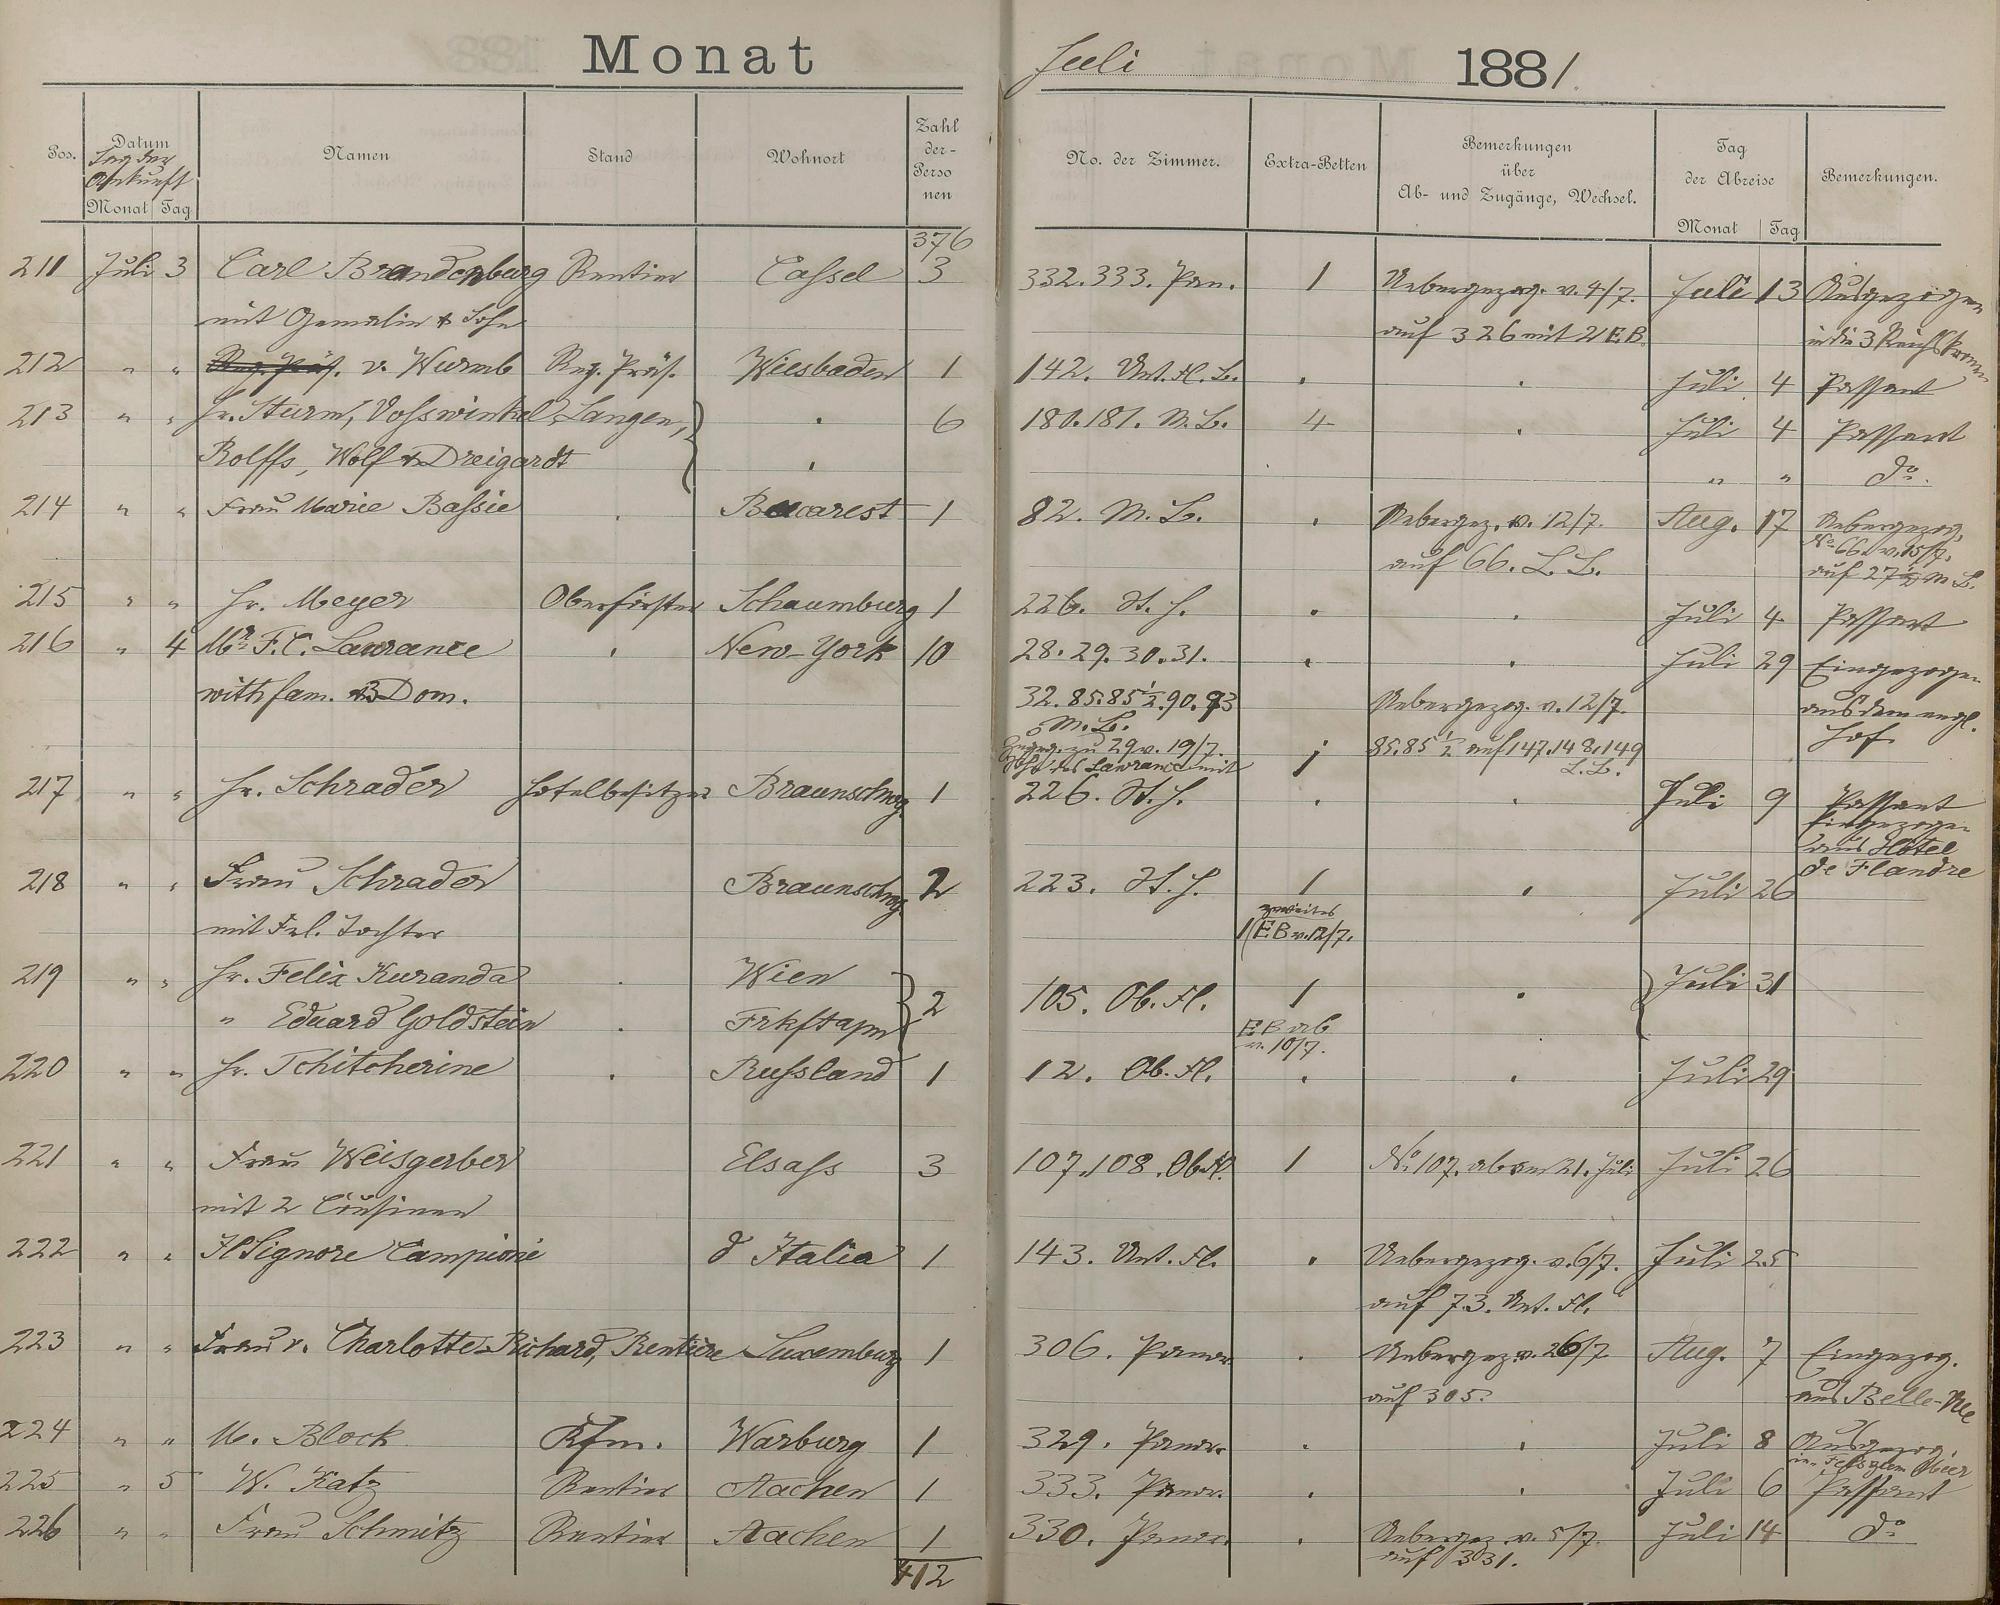 Monat
Juli 1881.
Pos. Datum Tag der Ankunft Monat Tag Namen Stand Wohnort Zahl der Personen No. der Zimmer. Extra-Betten Bemerkungen über Ab- und Zugänge, Wechsel. Tag der Abreise Monat Tag Bemerkungen.
376
211 Juli 3 Carl Brandenburg Rentier Cassel 3 332.333. Pan. 1 Uebergezog. v. 4/7. Juli 13 Ausgezogen
mit Gemalin & Sohn auf 326 mit 2 E.B. in die 3 Reichskronen
212 " " Reg. Präs. v. Wurmb Reg. Präs. Wiesbaden 1 142. Unt. Fl. L. . . Juli 4 Passant
213 " " Hr. Sturm, Vosswinkel, Langen, . 6 180.181. M. L. 4 . Juli 4 Passant
Rolffs, Wolf & Dreigardt . " " do.
214 " " Frau Marie Bassie . Bucarest 1 82. M. L. . Uebergez. v. 12/7. Aug. 17 Uebergezog.
auf 66. L. L. No 66. v. 15/7.
auf 27 1/2 M L.
215 " " Hr. Meyer Oberförster Schaumburg 1 226. St. H. . . Juli 4 Passant
216 " 4 Mr. F. C. Lawrance . New-York 10 28.29.30.31. . . Juli 29 Eingezogen
with fam. & 3 Dom. 32.85.85 1/2.90.93 Uebergezog. v. 12/7. aus dem engl.
M. L. Hof
zu 29 v. 19/7. 85.85 1/2 auf 147.148.149
des Lawrance mit L. L.
217 " " Hr. Schrader Hotelbesitzer Braunschwg. 1 226. St. H. . . Juli 9 Passant
Eingezogen
aus Hôtel
de Flandre
218 " " Frau Schrader Braunschwg. 2 223. St. H. 1 . Juli 26
mit Frl. Tochter zweites
1 E B v. 12/7.
219 " " Hr. Felix Kuranda . Wien 2 105. Ob. Fl. 1 . Juli 31
" Eduard Goldstein . Frkft a/m E.B ab
v. 10/7.
220 " " Hr. Tchitcherine . Russland 1 12. Ob. Fl. . . Juli 29
221 " " Frau Weisgerber Elsass 3 107.108. Ob. Fl. 1 No. 107. ab am 21. Juli Juli 26
mit 2 Cousinen
222 " " Il Signore Campioni d'Italia 1 143. Unt. Fl. . Uebergezog. v. 6/7. Juli 25
auf 73. Unt. Fl.
223 " " Frau v. Charlotte-Richard, Rentiere Luxemburg 1 306. Panor. . Uebergez. v. 26/7. Aug. 7 Eingezog.
auf 305. aus Belle-Vue
224 " " M. Block Kfm. Warburg 1 329. Panor. . . Juli 8 Ausgezog.
225 " 5 W. Katz Rentier Aachen 1 333. Panor. . . Juli 6 Passant
226 " " Frau Schmitz Rentier Aachen 1 330. Panor. . Uebergez. v. 5/7. Juli 14 do
auf 331.
412